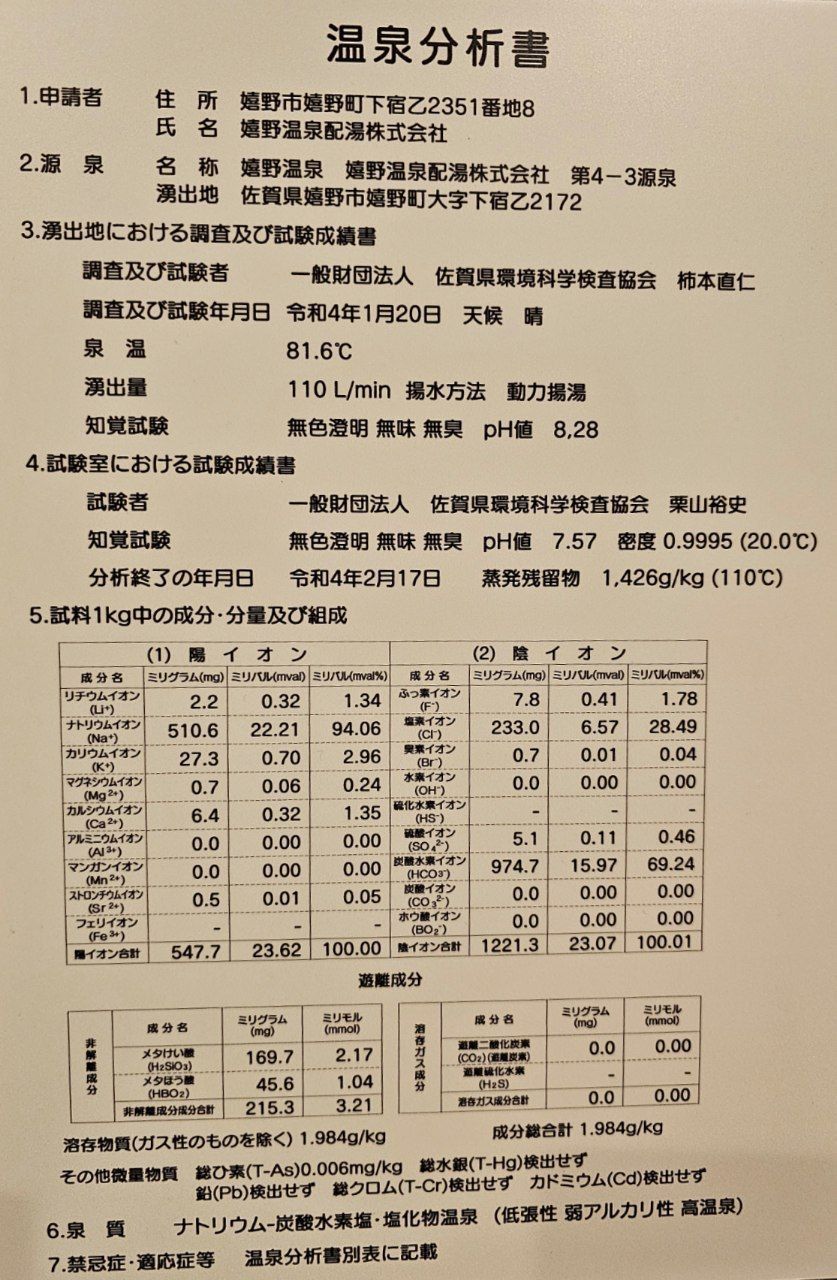 温泉分析書
1.申請者 住 所 嬉野市嬉野町下宿乙2351番地8
氏 名 嬉野温泉配湯株式会社
2.源 泉 名 称 嬉野温泉 嬉野温泉配湯株式会社 第4-3源泉
湧出地 佐賀県嬉野市嬉野町大字下宿乙2172
3.湧出地における調査及び試験成績書
調査及び試験者 一般財団法人 佐賀県環境科学検査協会 柿本直仁
調査及び試験年月日 令和4年1月20日 天候 晴
泉 温 81.6℃
湧出量 110 L/min 揚水方法 動力揚湯
知覚試験 無色澄明 無味 無臭 pH値 8,28
4.試験室における試験成績書
試験者 一般財団法人 佐賀県環境科学検査協会 栗山裕史
知覚試験 無色澄明 無味 無臭 pH値 7.57 密度 0.9995 (20.0℃)
分析終了の年月日 令和4年2月17日 蒸発残留物 1,426g/kg (110℃)
5.試料1kg中の成分・分量及び組成
(1) 陽 イ オ ン (2) 陰 イ オ ン
成分名 ミリグラム(mg) ミリバル(mval) ミリバル(mval%) 成分名 ミリグラム(mg) ミリバル(mval) ミリバル(mval%)
リチウムイオン (Li⁺) 2.2 0.32 1.34 ふっ素イオン (F⁻) 7.8 0.41 1.78
ナトリウムイオン (Na⁺) 510.6 22.21 94.06 塩素イオン (Cl⁻) 233.0 6.57 28.49
カリウムイオン (K⁺) 27.3 0.70 2.96 臭素イオン (Br⁻) 0.7 0.01 0.04
マグネシウムイオン (Mg²⁺) 0.7 0.06 0.24 水素イオン (OH⁻) 0.0 0.00 0.00
カルシウムイオン (Ca²⁺) 6.4 0.32 1.35 硫化水素イオン (HS⁻) - - -
アルミニウムイオン (Al³⁺) 0.0 0.00 0.00 硫酸イオン (SO₄²⁻) 5.1 0.11 0.46
マンガンイオン (Mn²⁺) 0.0 0.00 0.00 炭酸水素イオン (HCO³⁻) 974.7 15.97 69.24
ストロンチウムイオン (Sr²⁺) 0.5 0.01 0.05 炭酸イオン (CO₃²⁻) 0.0 0.00 0.00
フェリイオン (Fe³⁺) - - - ホウ酸イオン (BO₂⁻) 0.0 0.00 0.00
陽イオン合計 547.7 23.62 100.00 陰イオン合計 1221.3 23.07 100.01
遊離成分
非解離成分 成分名 ミリグラム (mg) ミリモル (mmol) 溶存ガス成分 成分名 ミリグラム (mg) ミリモル (mmol)
メタけい酸 (H₂SiO₃) 169.7 2.17 遊離二酸化炭素 (CO₂)(遊離炭素) 0.0 0.00
メタほう酸 (HBO₂) 45.6 1.04 遊離硫化水素 (H₂S) - -
非解離成分成分合計 215.3 3.21 溶存ガス成分合計 0.0 0.00
溶存物質(ガス性のものを除く) 1.984g/kg 成分総合計 1.984g/kg
その他微量物質 総ひ素(T-As)0.006mg/kg 総水銀(T-Hg)検出せず
鉛(Pb)検出せず 総クロム(T-Cr)検出せず カドミウム(Cd)検出せず
6.泉 質 ナトリウム-炭酸水素塩・塩化物温泉 (低張性 弱アルカリ性 高温泉)
7.禁忌症・適応症等 温泉分析書別表に記載